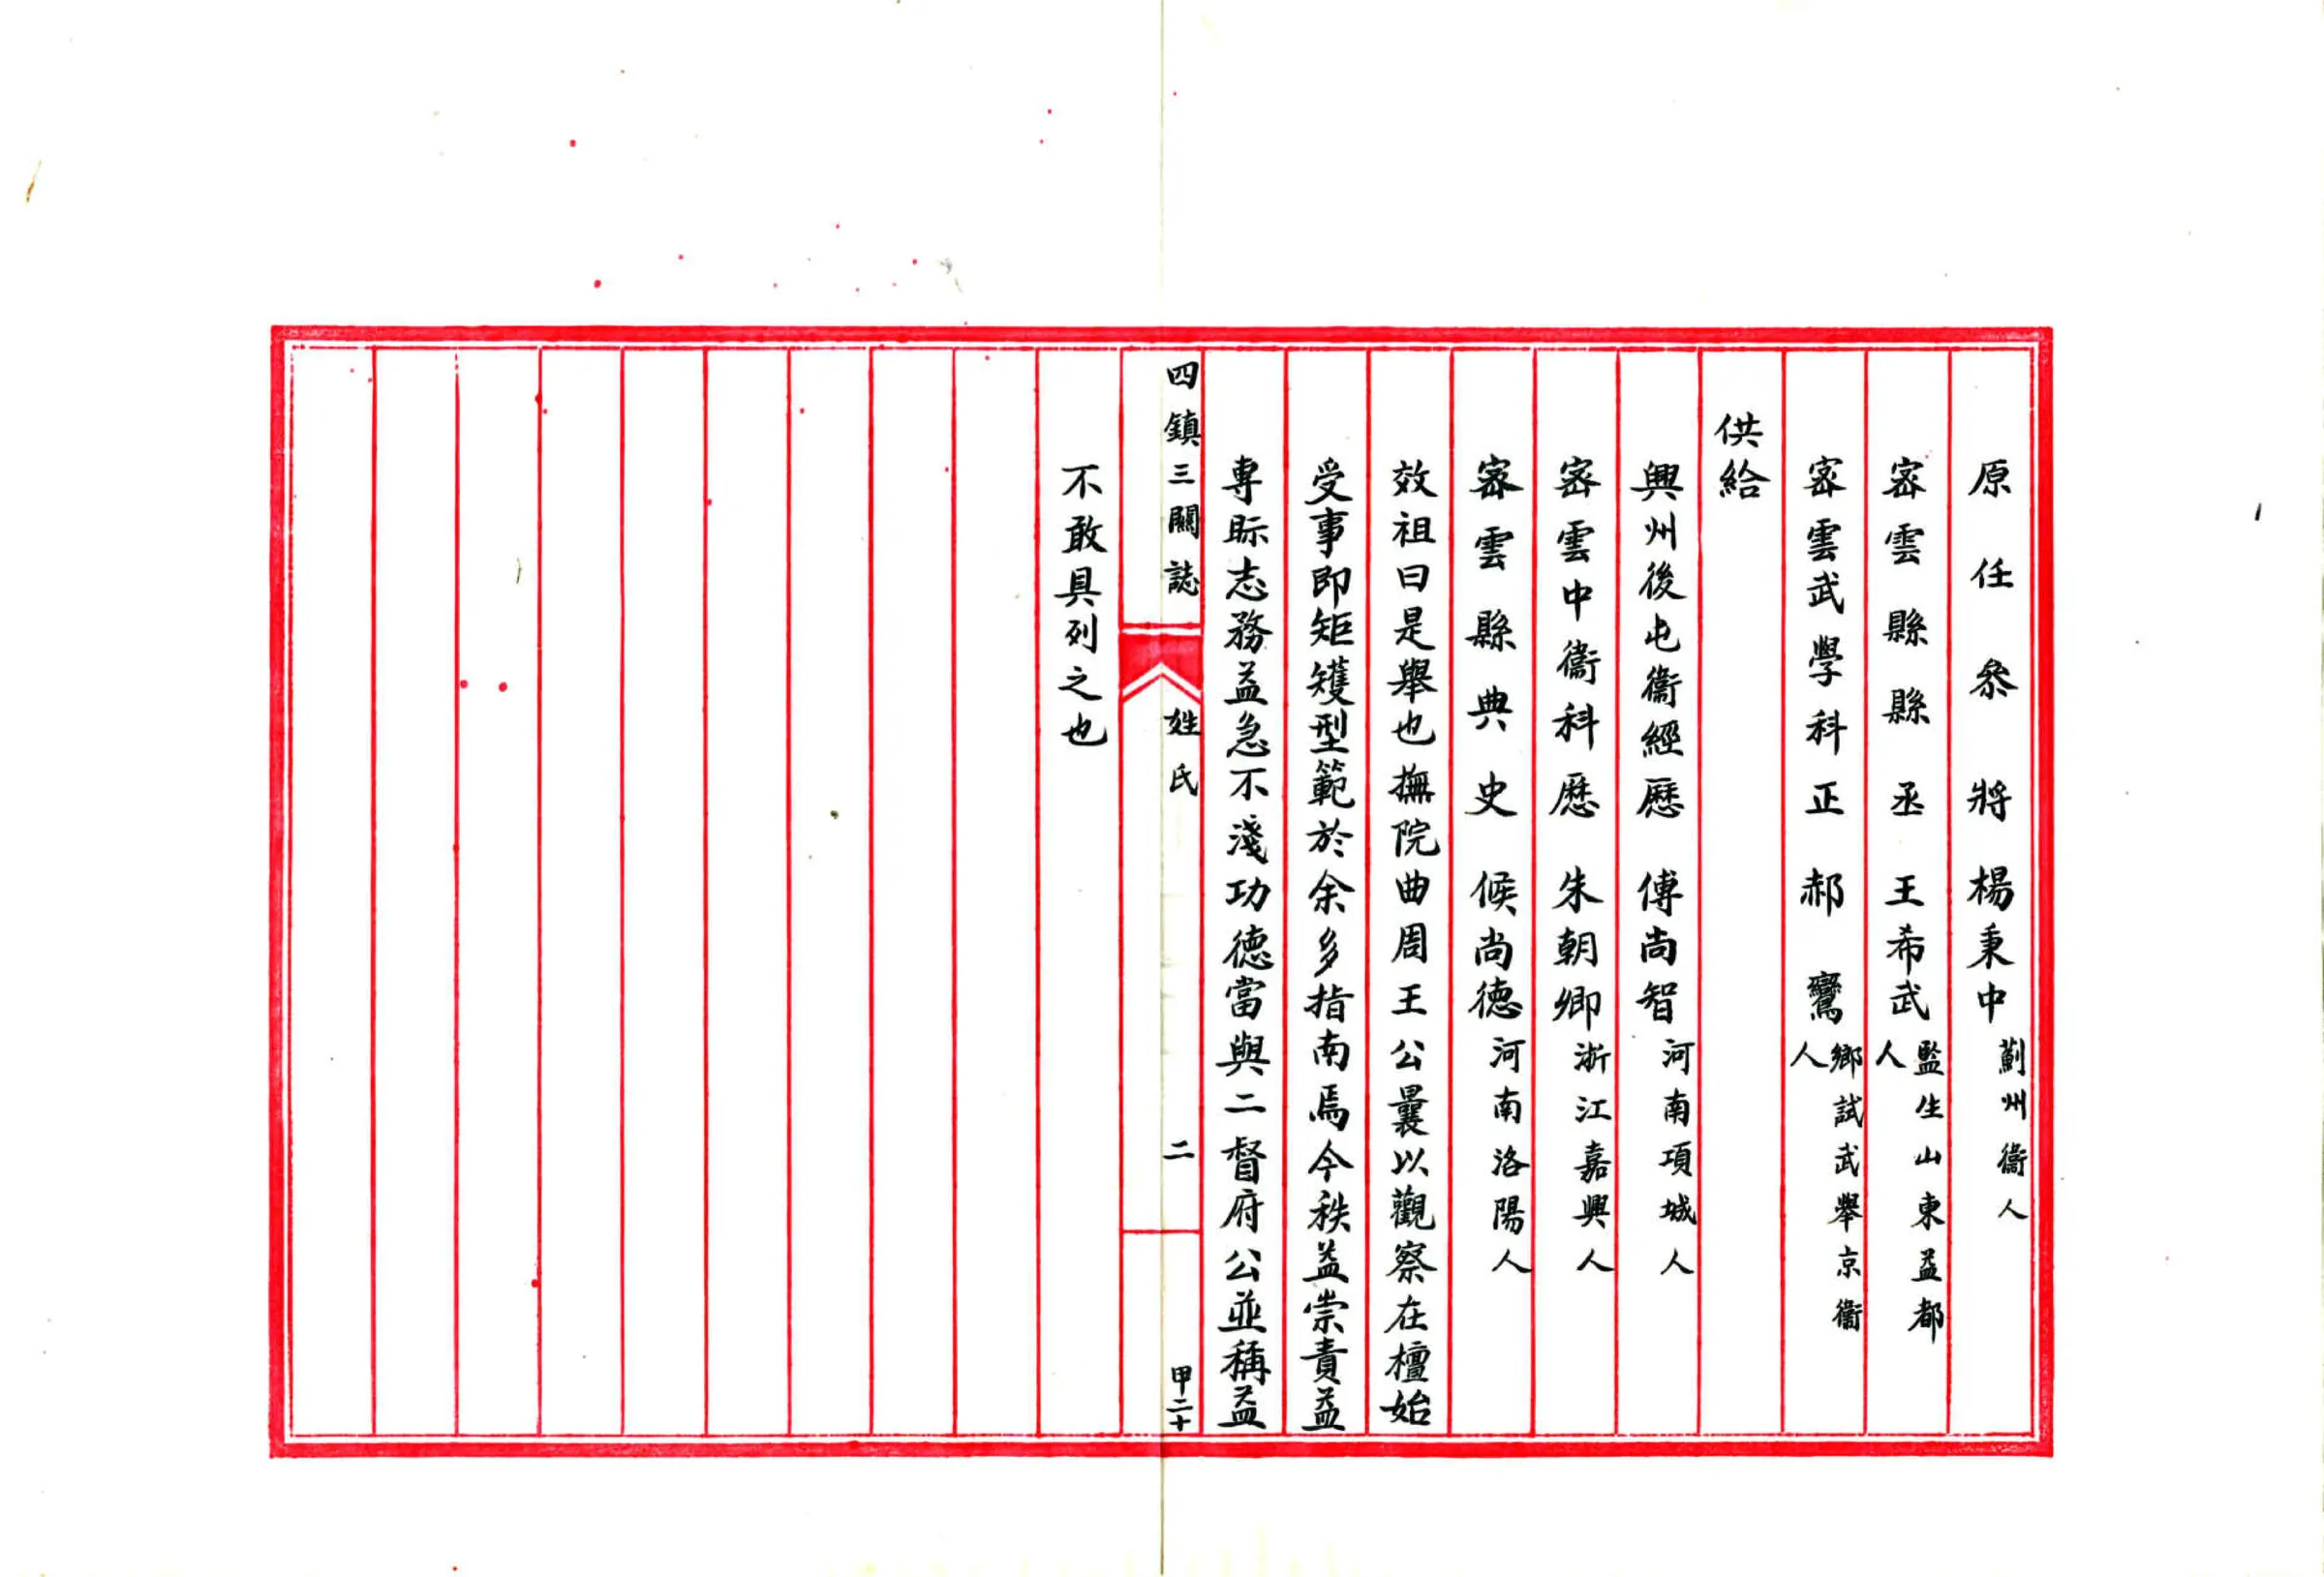 原任參將楊秉中薊州衞人
密雲縣縣丞王希武監生山東益都人
密雲武學科正郝鸞鄉試武舉京衞人
供給
興州後屯衞經歷傅尚智河南項城人
密雲中衞科歷朱朝卿浙江嘉興人
密雲縣典史候尚德河南洛陽人
效祖曰是舉也撫院曲周王公曩以觀察在檀始
受事即矩矱型範於余多指南焉今秩益崇責益
專眎志務益急不淺功德當與二督府公並稱益
四鎮三關誌 姓氏 二 甲二十
不敢具列之也